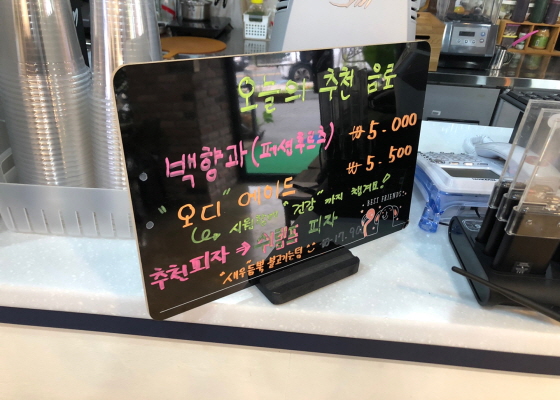 오늘의 추천 음료
백향과 (패션후르츠) ₩5.000
"오디" 에이드 ₩5.500
시원하고 "건강"까지 챙겨요!
BEST FRIENDS
추천피자 → 쉬림프 피자
새우듬뿍